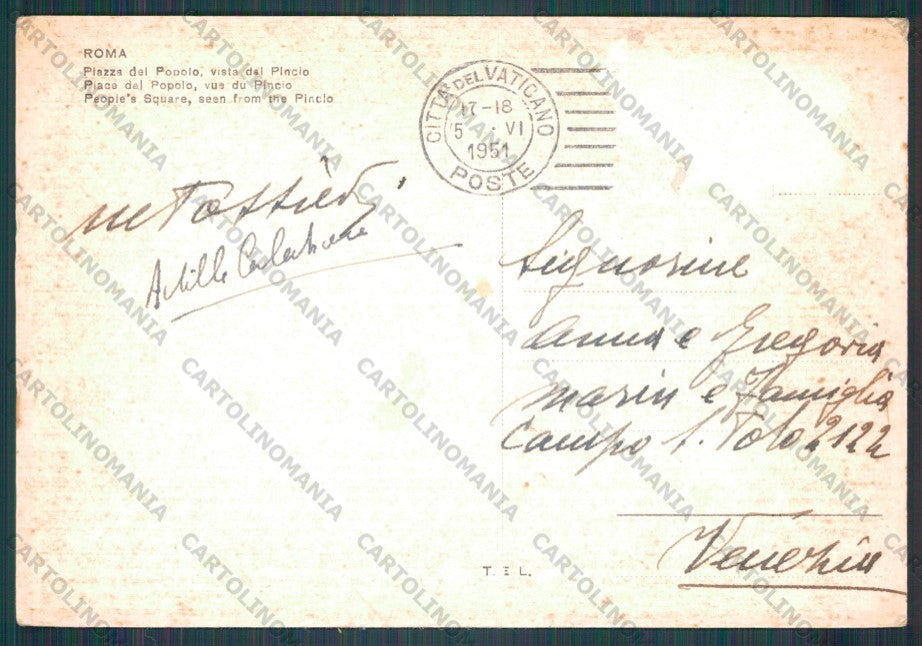 ROMA
Piazza del Popolo, vista dal Pincio
Place dal Popolo, vue du Pincio
People's Square, seen from the Pincio
CITTÀ DEL VATICANO
17-18
5 . VI
1951
POSTE
Achille
Signorine
Anna e Gregoria
Marin e Famiglia
Campo S. Polo 2122
Venezia
T. E L.
CARTOLINOMANIA